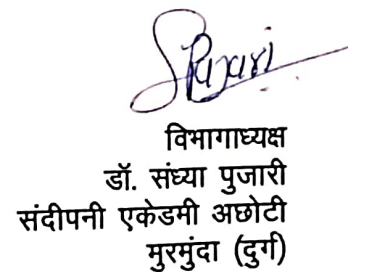 SPujari
विभागाध्यक्ष
डॉ. संध्या पुजारी
संदीपनी एकेडमी अछोटी
मुरमुंदा (दुर्ग)